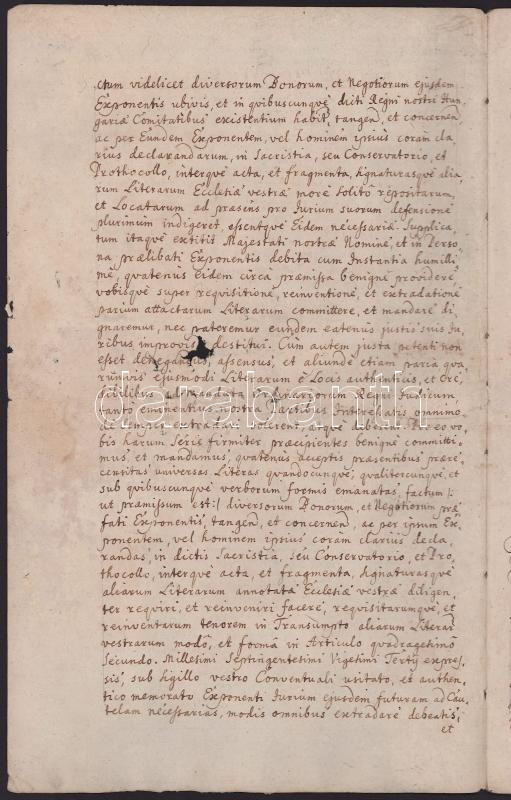 ctum videlicet diversorum Donorum, et Negotiorum ejusdem
Exponentis ubivis, et in qvibuscunqvè dicti Regni nostri Hun-
gariæ Comitatibus existentium habit, tangen, et concernen
ac per Eundem Exponentem, vel hominem ipsius coram cla
rius declarandarum, in Sacristia, seu Conservatorio, et
Prothocollo, interqvè acta, et fragmenta, signaturasqvè alia
rum Literarum Ecclesiæ vestræ morè solitò repositarum,
et Locatarum ad præsens pro Iurium suorum defensionè
plurimùm indigeret, essentqvè Eidem necessariæ. Supplica
tum itaqvè extitit Majestati nostræ Nominè, et in Perso
na prælibati Exponentis debita cum Instantia humilli
mè, qvatenus eidem circà præmissa benignè providerè
vobisqvè super reqvisitionè, reinventionè, et extradationè
parium attactarum Literarum committere, et mandarè di
gnaremur, nec pateremur eundem eatenùs justis suis Iu
ribus improvisè destitui. Cùm autem justa petenti non
esset denegandus, assensus, et aliunde etiam paria qva
rumvis ejusmodi Literarum è Locis authenticis, et Cre
dibilibus ad mandata Ordinariorum Regni Iudicum
tanto eminentius nostra Partibus Interessatis omnimo
de semper extradari solerent, atqvè deberent. Proeo vo
bis harum Seriè firmiter præcipientes benignè committi-
mus, et mandamus, qvatenùs acceptis præsentibus prære
censitas universas Literas qvandocunqvè, qvalitercunqvè, et
sub qvibuscunqvè verborum formis emanatas, factum /:
ut præmissum est:/ diversorum Donorum, et Negotiorum præ
fati Exponentis, tangen, et concernen, ac per ipsum Ex
ponentem, vel hominem ipsius coràm clarius decla
randas, in dictis Sacristia, seu Conservatorio, et Pro
thocollo, interqvè acta, et fragmenta, signaturasqvè
aliarum Literarum annotatæ Ecclesiæ vestræ diligen
ter reqviri, et reinveniri facerè, reqvisitarumqvè, et
reinventarum tenorem in Transumpto aliarum Literar
vestrarum modò, et formâ in Articulo qvadragesimò
Secundo. Millesimi Septingentesimi Vigesimi Tertÿ expres
sis, sub sigillo vestro Conventuali usitato, et authen
tico memorato Exponenti Iurium ejusdem futuram ad Cau
telam necessarias, modis omnibus extradarè debeatis,
et
databanth